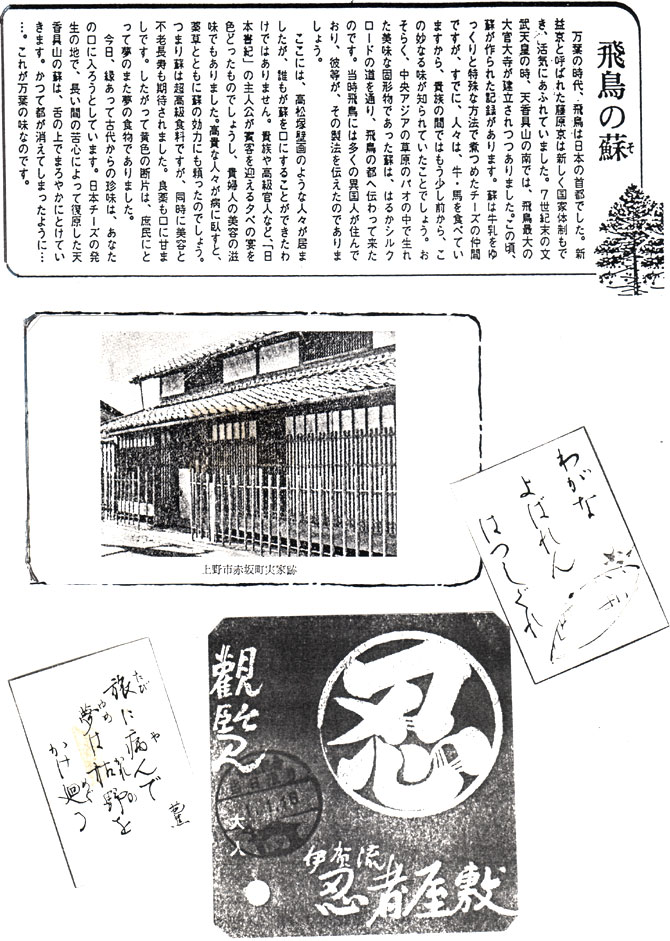 飛鳥の蘇
そ
万葉の時代、飛鳥は日本の首都でした。新
益京と呼ばれた藤原京は新しく国家体制もで
き、活気にあふれていました。7世紀末の文
武天皇の時、天香具山の南では、飛鳥最大の
大官大寺が建立されつつありました。この頃、
蘇が作られた記録があります。蘇は牛乳をゆ
っくりと特殊な方法で煮つめたチーズの仲間
ですが、すでに、人々は、牛・馬を食べてい
ますから、貴族の間ではもう少し前から、こ
の妙なる味が知られていたことでしょう。お
そらく、中央アジアの草原のパオの中で生れ
た美味な固形物であった蘇は、はるかシルク
ロードの道を通り、飛鳥の都へ伝わって来た
のです。当時飛鳥には多くの異国人が住んで
おり、彼等が、その製法を伝えたのでありま
しょう。
ここには、高松塚壁画のような人々が居ま
したが、誰もが蘇を口にすることができたわ
けではありません。貴族や高級官人など、「日
本書紀」の主人公が賓客を迎える夕べの宴を
色どったものでしょうし、貴婦人の美容の滋
味でもありました。高貴な人々が病に臥すと、
薬草とともに蘇の効力にも頼ったのでしょう。
つまり蘇は超高級食料ですが、同時に美容と
不老長寿も期待されました。良薬も口に甘ま
しです。したがって黄色の断片は、庶民にと
って夢のまた夢の食物でありました。
今日、縁あって古代からの珍味は、あなた
の口に入ろうとしています。日本チーズの発
生の地で、長い間の苦心によって復原した天
香具山の蘇は、舌の上でまろやかにとけてい
きます。かつて都が消えてしまったように…
…。これが万葉の味なのです。
上野市赤坂町実家跡
わがな
よばれん
はつしぐれ
旅に病んで
たび や
夢は枯野を
ゆめ かれの
かけ廻る
めぐ
忍
観覧
大人
1.16
伊賀流
忍者屋敷